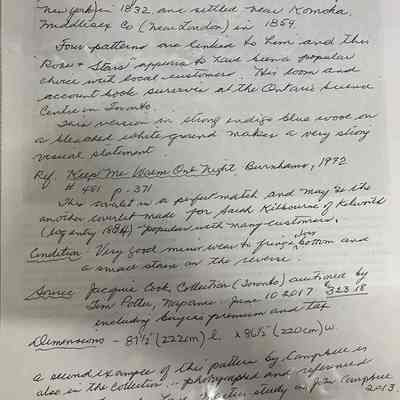 New York) in 1832 and settled near Komoka
Middlesex Co (near London) in 1859.
Four patterns are linked to him and this
"Rose & Stars" appears to have been a popular
choice with local customers. His loom and
account book survive at the Ontario Science
Centre in Toronto.
This version in strong indigo blue wool on
a bleached white ground makes a very strong
visual statement.
Ref. Keep Me Warm One Night, Burnhams, 1972
# 481 p. 371
This coverlet is a perfect match and may be the
another coverlet made for Sarah Kilbourne of Kilworth
(log entry 1884) Popular with many customers.
Condition - Very good minor wear to fringe, bottom and
a small stain on the reverse.
Source Jacquie Cook Collection (Toronto) auctioned by
Tim Potter, Napanee. June 10 2017 $323.18
including buyers premium and tax
Dimensions - 87½" (222cm) l. x 86½" (220cm) w.
A second example of this pattern by Campbell is
also in the collection - photographed and referenced
study on John Campbell
2013.